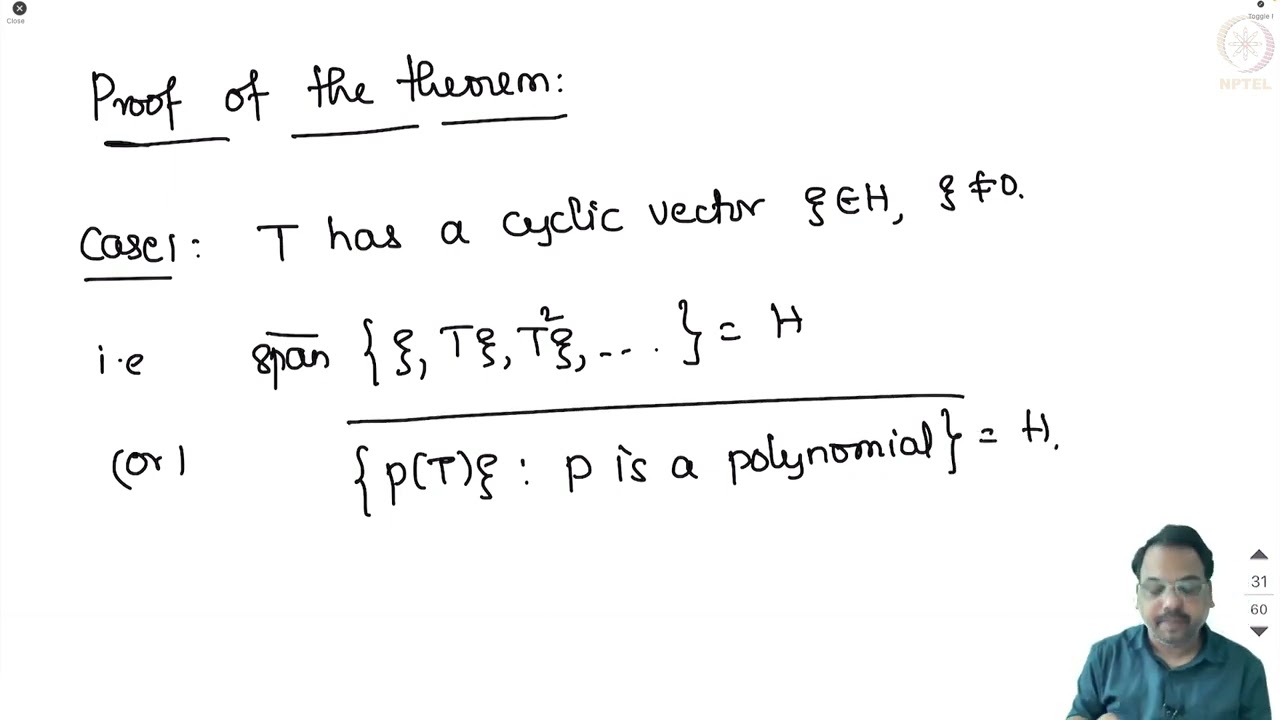 Close
Toggle I
NPTEL
Proof of the theorem:
Case1: T has a cyclic vector ξ∈H, ξ≠0.
i.e span {ξ, Tξ, T²ξ,....} = H
(or) {p(T)ξ : p is a polynomial} = H.
31
60